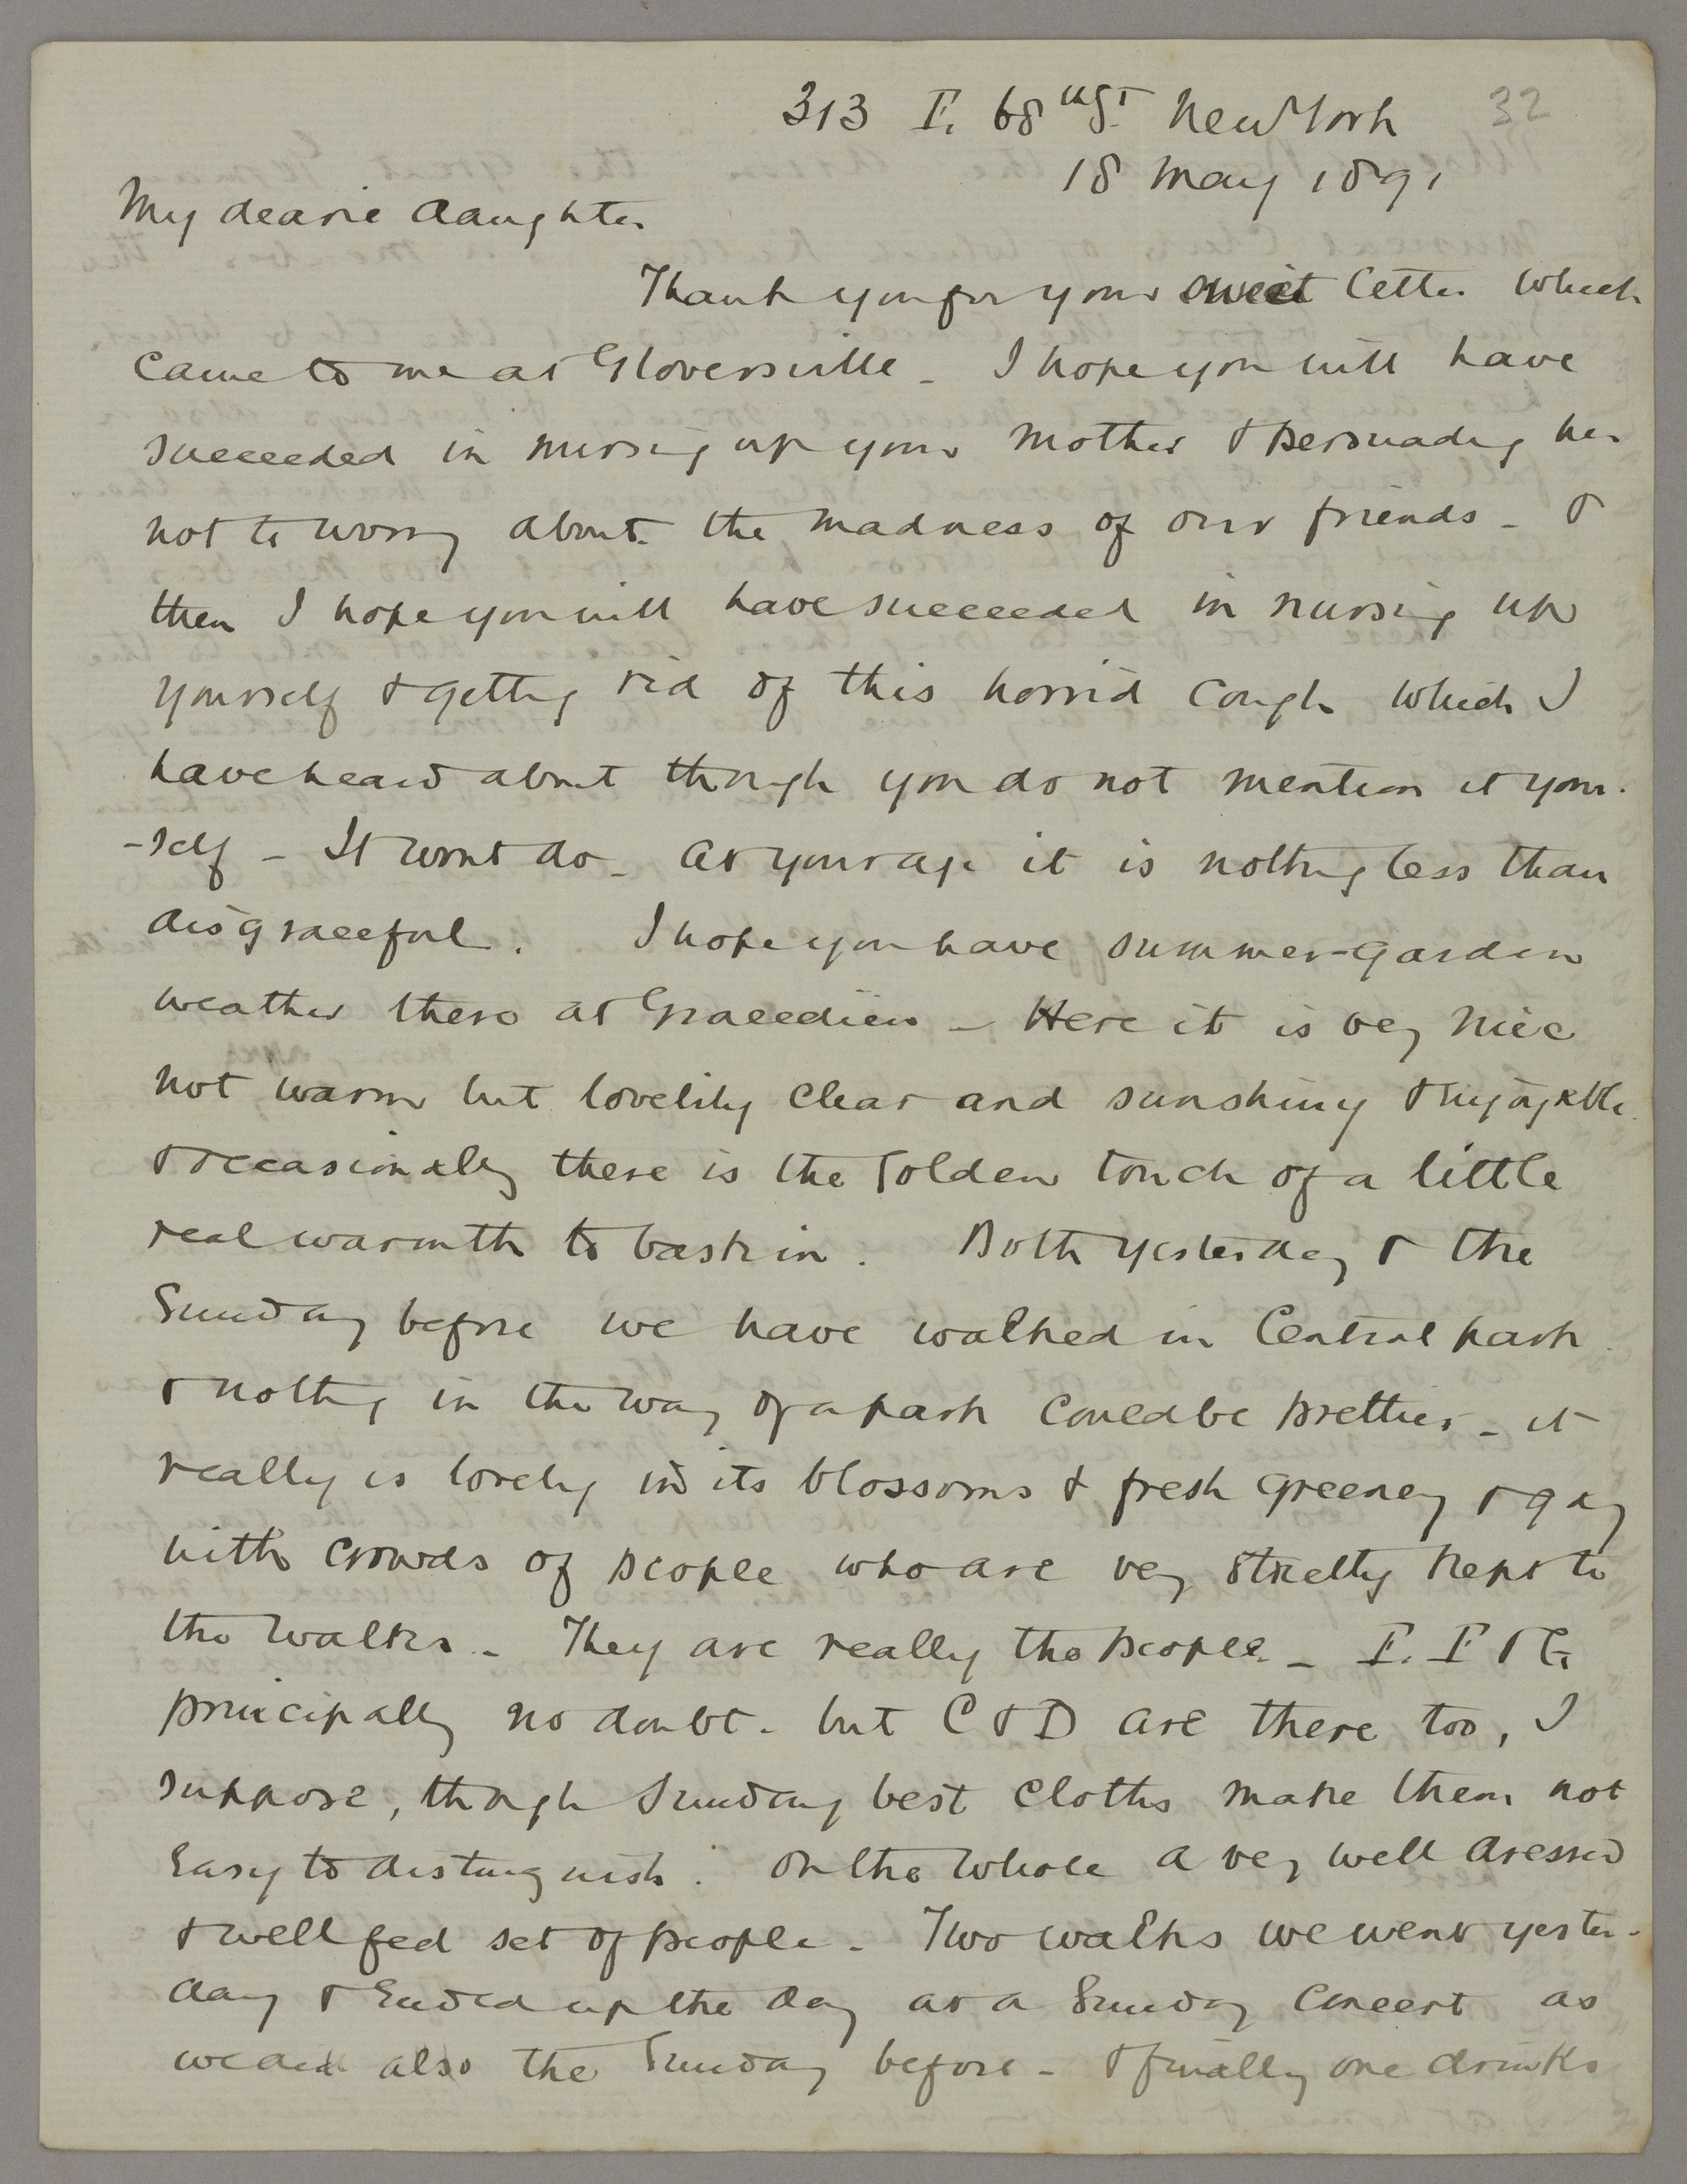 313 E. 68th St. New York 32
18 May 1891
My dearie daughter
Thank you for your sweet letter which
came to me at Gloversville - I hope you will have
succeeded in nursing up your mother & persuading her
not to worry about the madness of our friends - &
then I hope you will have succeeded in nursing up
yourself & getting rid of this horrid cough which I
have heard about though you do not mention it your-
-self - It wont do - At your age it is nothing less than
disgraceful. I hope you have summer-garden
weather there at Gracedieu - Here it is very nice
not warm but lovelily clear and sunshiny & enjoyable
& occasionally there is the golden touch of a little
real warmth to bask in. Both yesterday & the
Sunday before we have walked in Central park
& nothing in the way of a park could be prettier - it
really is lovely in its blossoms & fresh greenery & gay
with crowds of people who are very strictly kept to
the walks - They are really the people - E. F & G
principally no doubt - but C & D are there too, I
suppose, though Sunday best cloths make them not
easy to distinguish. On the whole a very well dressed
& well fed set of people - Two walks we went yester-
day & ended up the day at a Sunday concert as
we did also the Sunday before - & finally one drinks